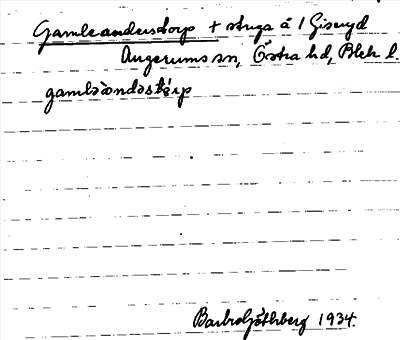 Gamleanderstorp + stuga å 1 Giseryd
Augerums sn, Östra hd, Blek l.
gamləàndəstórp
Barbro Göthberg 1934.